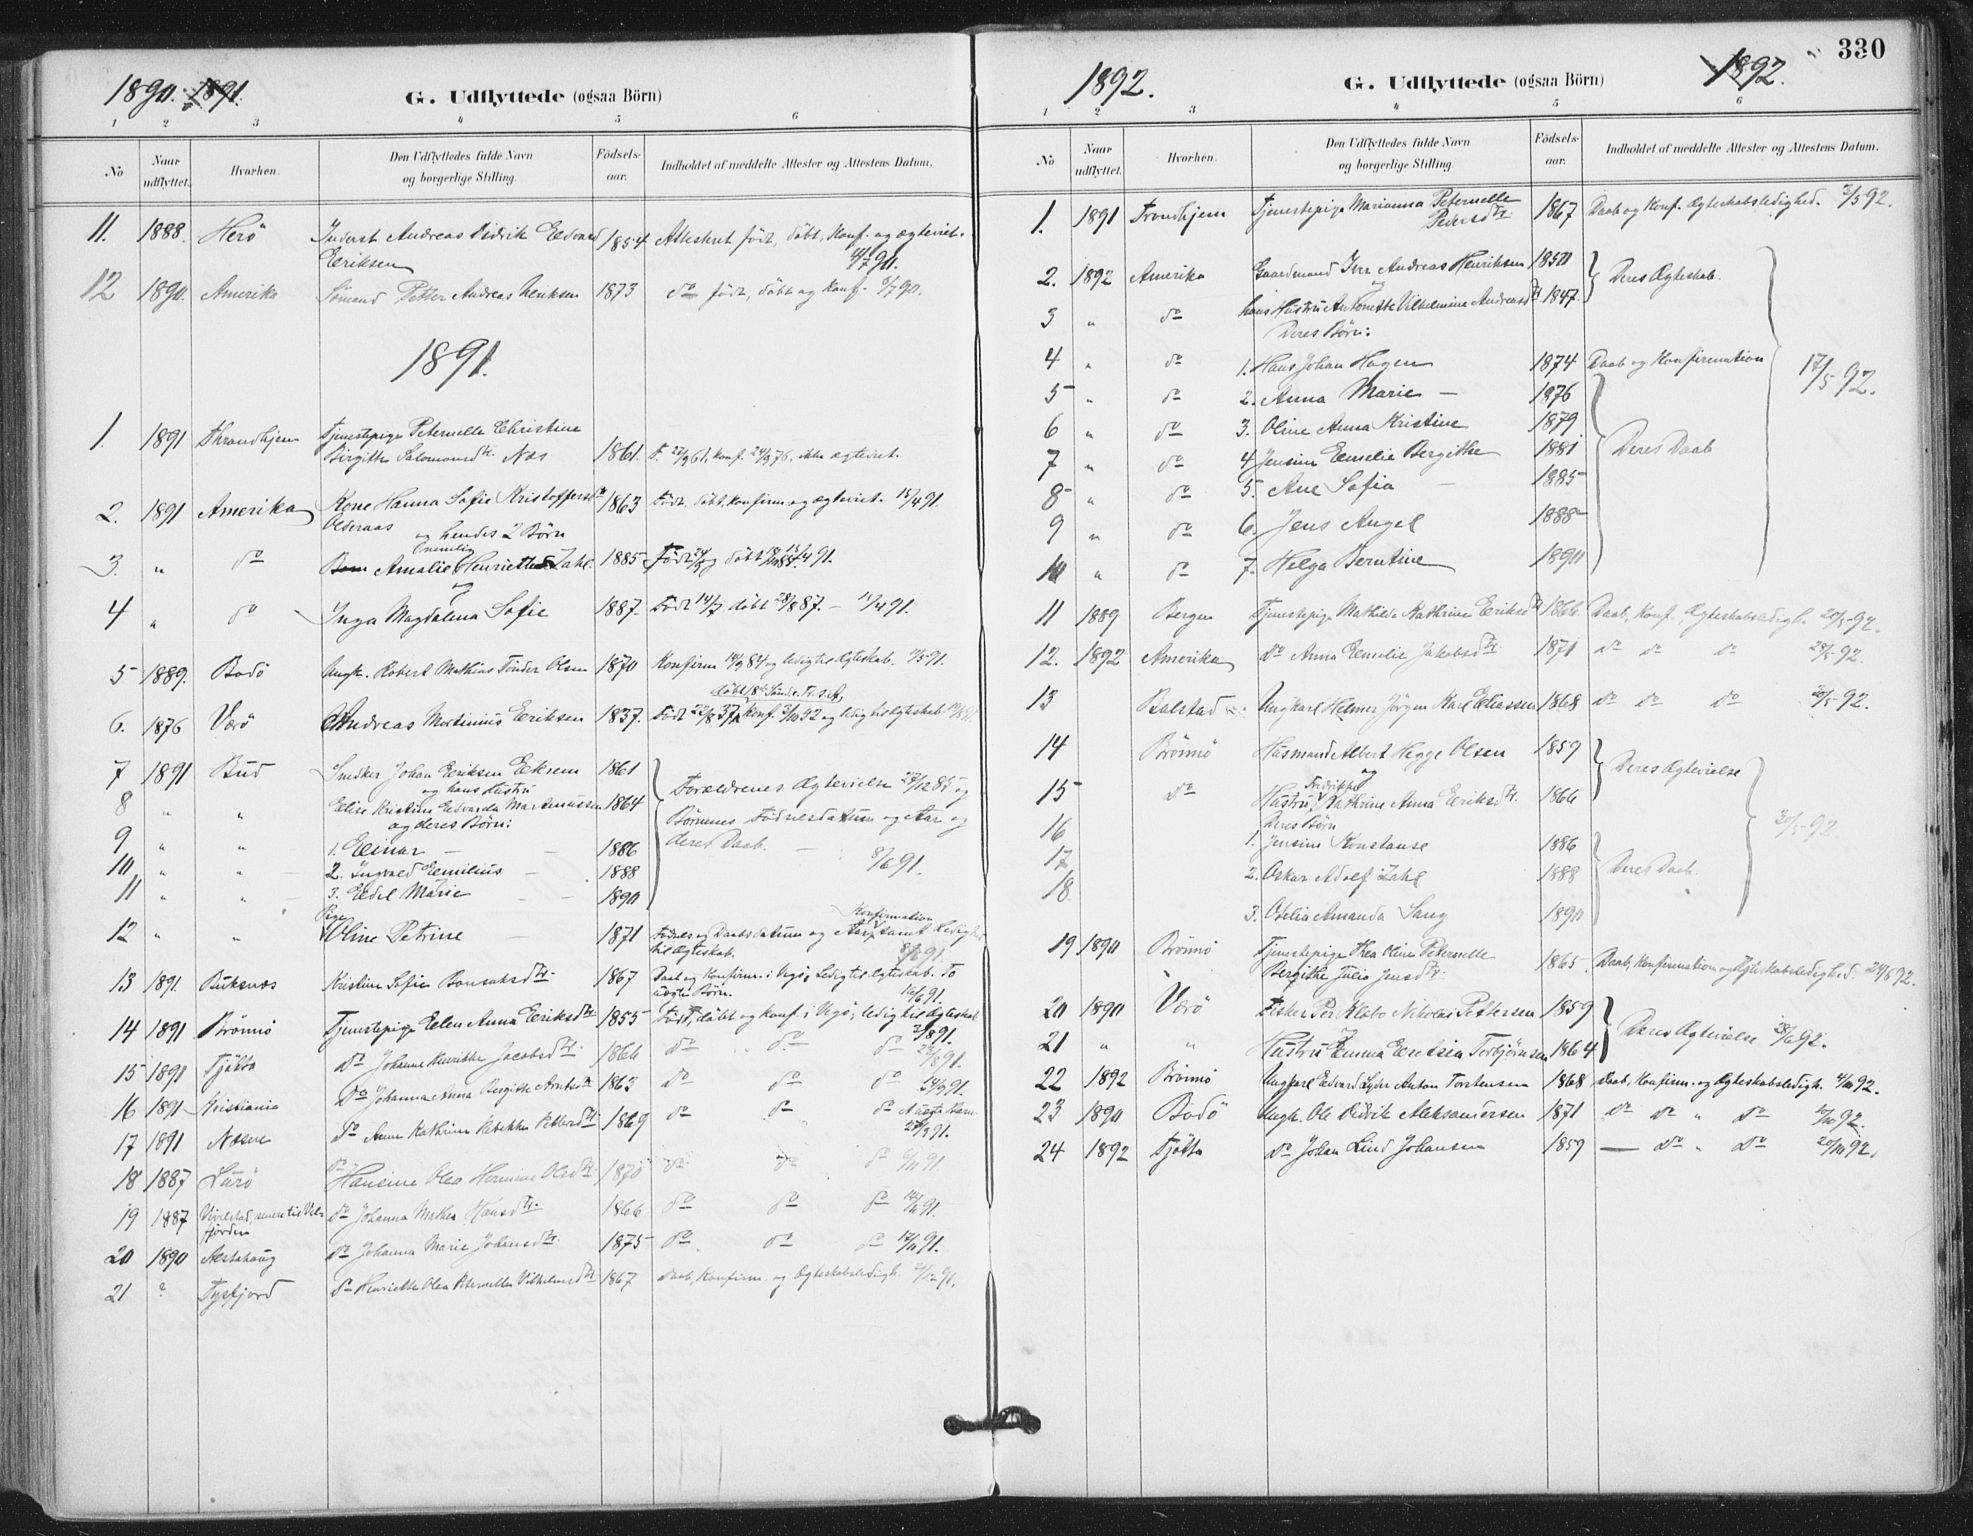 1890. 1891.
G. Udflyttede (ogsaa Börn)
1 2 3 4 5 6
No Naar udflyttet. Hvorhen. Den Udflyttedes fulde Navn og borgerlige Stilling. Födsels-aar. Indholdet af meddelte Attester og Attestens Datum.
11. 1888. Herö Inderst Andreas Didrik Edvard 1854 Attesteret födt, döbt, konf. og ægteviet.
Eriksen /7 90.
12 1890. Amerika Sömand Petter Andreas Henriksen 1873 do födt, döbt og konf. /7 90.
1891.
1. 1891 Thrandhjem Tjenestepige Peternelle Christine
Birgitte Salomonsdtr. Næs 1861. F. 27/9 61, konf. 24/9 76. ikke ægteviet.
2. 1891 Amerika Kone Hanna Sofie Kristoffersdtr 1863 Födt, döbt, konfirm og ægteviet. 15/4 91.
Olderaas og hendes 2 Börn
3. " do Amalie Henriette Zahl. 1885 Födt og döbt 15/4 91.
og
4 " do Inga Magdalena Sofie 1887. Födt 14/7 döbt 28/8 87. — 15/4 91.
5 1889. Bodö Ungk. Robert Mathias Tönder Olsen 1870 Konfirm 14/9 84 og ledig til Ægteskab. /5 91.
6. 1876 Værö Andreas Mortinius Eriksen 1837. Födt 22/8 37, konf. 3/10 52 og ledig til Ægteskab
7 1891 Bud Snedker Johan Eriksen Ekrem 1861
og hans Hustru
8 " " Elise Kristine Edvarda Martinussen 1864 Foræeldrenes Ægtevielse 27/12 85 og
og deres Börn: Börnenes Födselsdatum og Aar og
9 " " 1. Einar — 1886 deres Daab. — 8/6 91.
10 " " 2. Ingvald Emilius — 1888
11 " " 3. Edel Marie — 1890
12 " " Pige Oline Petrine — 1871 Födsels og Daabsdatum og Aar, Konfirmation samt Ledighed
til Ægteskab. 8/6 91.
13 1891. Buksnæs Kristine Sofie Bonsaksdtr. 1867 Daab og Konfirm. i Vegö; Ledig til Ægteskab. To
uægte Börn. 16/6 91.
14 1891 Brönnö Tjenestepige Ellen Anna Eriksdtr 1855 Födt, döbt og konf. i Vegö; ledig til Ægteskab
/8 91.
15 1891 Tjötta do Johanne Henrikke Jacobsdtr. 1866 do do do 23/8 91.
16 1891 Kristiania do Johanna Anna Bergitte Arntsdtr 1863 do do do 24/9 91.
17 1891 Næsne do Anne Kathrine Rebekka Pettersdtr. 1869 do do do Et uægte Barn.
/9 91.
18 1887 Lurö do Hansine Olea Hermine Olsdtr 1870 do do do 9/11 91.
19 1887 Vivelstad, senere til Vel- do Johanna Mathea Hansdtr. 1866 do do do 14/11 91.
fjorden
20 1890 Alstahaug do Johanna Marie Johansdtr. 1875 do do do 17/11 91.
21 ? Tysfjord do Henriette Olea Peternelle Vilhelmsdtr 1867 Daab, Konfirm. og Ægteskabsledigh. 2/12 91.
330
1892. G. Udflyttede (ogsaa Börn) 1892.
1 2 3 4 5 6
No Naar udflyttet. Hvorhen. Den Udflyttedes fulde Navn og borgerlige Stilling. Födsels-aar. Indholdet af meddelte Attester og Attestens Datum.
1. 1891 Trondhjem Tjenestepige Marianna Peternelle 1867 Daab og Konf. Ægteskabsledighed. 3/5 92.
Pedersdtr.
2. 1892 Amerika Gaardmand Iver Andreas Henriksen 1850 Deres Ægteskab.
og
3 " do hans Hustru Antonette Vilhelmine Andreasdtr 1847.
Deres Börn:
4 " do 1. Hans Johan Hagen 1874 Daab og Konfirmation 17/5 92.
5 " do 2. Anna Marie — 1876
6 " do 3. Oline Anna Kristine 1879
7 " do 4 Jensine Emelie Bergithe 1881 Deres Daab
8 " do 5. Ane Sofia — 1885
9 " do 6. Jens Angel 1888
10 " do 7. Helga Berntine 1890
11 1889 Bergen Tjenestepige Mathilde Kathrine Eriksdtr 1866 Daab, Konf., Ægteskabsledigh. 20/5 92.
12. 1892 Amerika do Anna Emelie Jakobsdtr. 1871 do do do 28/5 92.
13 Balstad Ungkarl Helmer Jörgen Karl Eliassen 1868 do do do 30/5 92.
14 Brönnö Husmand Albert Hegge Olsen 1859 Deres Ægtevielse
og
15 do Hustru Fredrikke Kathrine Anna Eriksdtr. 1866
Deres Börn
16 1. Jensine Konstanse 1886 3/5 92.
17 2. Oskar Adolf Zahl 1888 Deres Daab.
18 3. Otelia Amanda Sang 1890 "
19 1890 Brönnö Tjenestepige Thea Oline Peternelle
Bergithe Julie Jensdtr. 1865. Daab, Konfirmation og Ægteskabsledighed. 24/6 92.
20 1890 Værö Fisker Per Klabo Nikolai Pettersen 1859 Deres Ægtevielse 28/6 92.
21 " " Hustru Emma Torbjörnsen 1864
22 1892 Brönnö Ungkarl Edvard Lyder Anton Torstensen 1868 Daab, Konfirm. og Ægteskabsledigh. 4/10 92.
23 1890 Bodö Ungk. Ole Didrik Aleksandersen 1871 do do " do /10 92.
24 1892 Tjötta do Johan Lind Johansen 1859 — do " do 20/10 92.